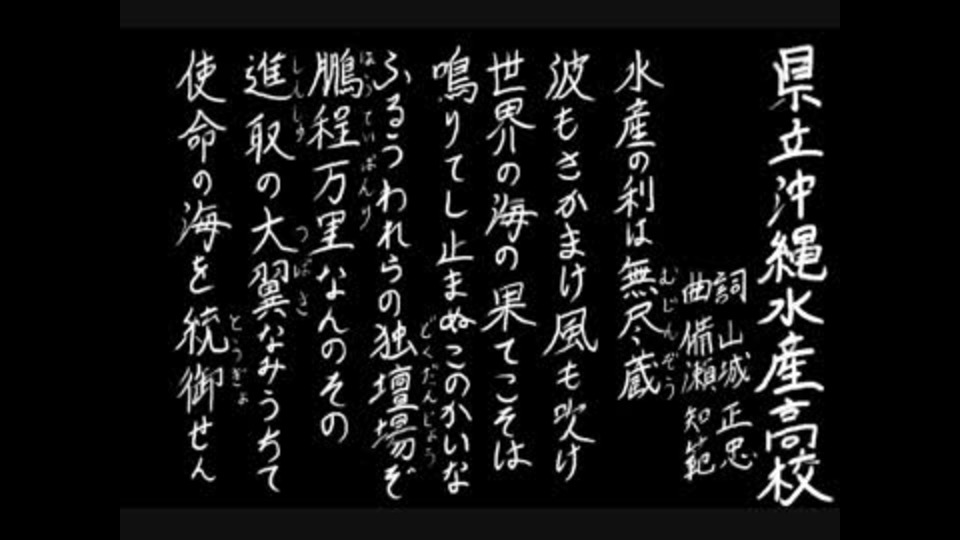 県立沖縄水産高校
詞 山城 正忠
曲 備瀬 知範
水産の利は無尽蔵
むじんぞう
波もさかまけ風も吹け
世界の海の果てこそは
鳴りてし止まぬこのかいな
ふるうわれらの独壇場ぞ
どくだんじょう
鵬程万里なんのその
ほうていばんり
進取の大翼なみうちて
しんしゅ
つばさ
使命の海を統御せん
とうぎょ